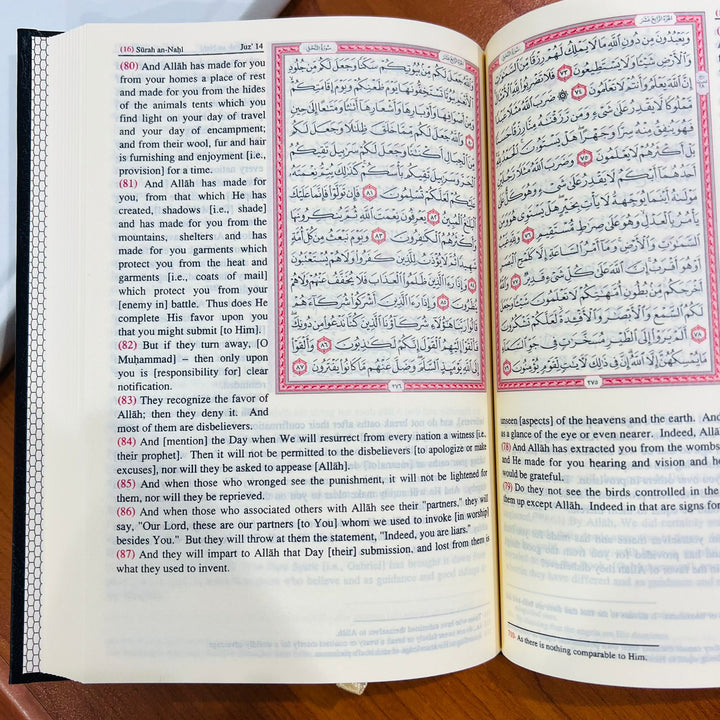 (16) Sūrah an-Naḥl Juz' 14
(80) And Allāh has made for you
from your homes a place of rest
and made for you from the hides
of the animals tents which you
find light on your day of travel
and your day of encampment;
and from their wool, fur and hair
is furnishing and enjoyment [i.e.,
provision] for a time.
(81) And Allāh has made for
you, from that which He has
created, shadows [i.e., shade]
and has made for you from the
mountains, shelters and has
made for you garments which
protect you from the heat and
garments [i.e., coats of mail]
which protect you from your
[enemy in] battle. Thus does He
complete His favor upon you
that you might submit [to Him].
(82) But if they turn away, [O
Muḥammad] – then only upon
you is [responsibility for] clear
notification.
(83) They recognize the favor of
Allāh; then they deny it. And
most of them are disbelievers.
(84) And [mention] the Day when We will resurrect from every nation a witness [i.e.,
their prophet]. Then it will not be permitted to the disbelievers [to apologize or make
excuses], nor will they be asked to appease [Allāh].
(85) And when those who wronged see the punishment, it will not be lightened for
them, nor will they be reprieved.
(86) And when those who associated others with Allāh see their "partners," they will
say, "Our Lord, these are our partners [to You] whom we used to invoke [in worship]
besides You." But they will throw at them the statement, "Indeed, you are liars."
(87) And they will impart to Allāh that Day [their] submission, and lost from them is
what they used to invent.
الجزء الرابع عشر سورة النحل
وَٱللَّهُ جَعَلَ لَكُم مِّنۢ بُيُوتِكُمْ سَكَنًا وَجَعَلَ لَكُم مِّن جُلُودِ
ٱلْأَنْعَٰمِ بُيُوتًا تَسْتَخِفُّونَهَا يَوْمَ ظَعْنِكُمْ وَيَوْمَ إِقَامَتِكُمْ
وَمِنْ أَصْوَافِهَا وَأَوْبَارِهَا وَأَشْعَارِهَآ أَثَٰثًا وَمَتَٰعًا إِلَىٰ حِينٍ
٨٠ وَٱللَّهُ جَعَلَ لَكُم مِّمَّا خَلَقَ ظِلَٰلًا وَجَعَلَ لَكُم
مِّنَ ٱلْجِبَالِ أَكْنَٰنًا وَجَعَلَ لَكُمْ سَرَٰبِيلَ تَقِيكُمُ
ٱلْحَرَّ وَسَرَٰبِيلَ تَقِيكُم بَأْسَكُمْ كَذَٰلِكَ يُتِمُّ نِعْمَتَهُۥ
عَلَيْكُمْ لَعَلَّكُمْ تُسْلِمُونَ ٨١ فَإِن تَوَلَّوْا۟ فَإِنَّمَا عَلَيْكَ
ٱلْبَلَٰغُ ٱلْمُبِينُ ٨٢ يَعْرِفُونَ نِعْمَتَ ٱللَّهِ ثُمَّ يُنكِرُونَهَا
وَأَكْثَرُهُمُ ٱلْكَٰفِرُونَ ٨٣ وَيَوْمَ نَبْعَثُ مِن كُلِّ أُمَّةٍ
شَهِيدًا ثُمَّ لَا يُؤْذَنُ لِلَّذِينَ كَفَرُوا۟ وَلَا هُمْ يُسْتَعْتَبُونَ
٨٤ وَإِذَا رَءَا ٱلَّذِينَ ظَلَمُوا۟ ٱلْعَذَابَ فَلَا يُخَفَّفُ عَنْهُمْ وَلَا هُمْ
يُنظَرُونَ ٨٥ وَإِذَا رَءَا ٱلَّذِينَ أَشْرَكُوا۟ شُرَكَآءَهُمْ
قَالُوا۟ رَبَّنَا هَٰٓؤُلَآءِ شُرَكَآؤُنَا ٱلَّذِينَ كُنَّا نَدْعُوا۟ مِن دُونِكَ
فَأَلْقَوْا۟ إِلَيْهِمُ ٱلْقَوْلَ إِنَّكُمْ لَكَٰذِبُونَ ٨٦ وَأَلْقَوْا۟
إِلَى ٱللَّهِ يَوْمَئِذٍ ٱلسَّلَمَ وَضَلَّ عَنْهُم مَّا كَانُوا۟ يَفْتَرُونَ ٨٧
٢٧٦
الجزء الرابع عشر سورة النحل
وَيَعْبُدُونَ مِن دُونِ ٱللَّهِ مَا لَا يَمْلِكُ لَهُمْ رِزْقًا مِّنَ ٱلسَّمَٰوَٰتِ
وَٱلْأَرْضِ شَيْـًٔا وَلَا يَسْتَطِيعُونَ ٧٣ فَلَا تَضْرِبُوا۟ لِلَّهِ ٱلْأَمْثَالَ
إِنَّ ٱللَّهَ يَعْلَمُ وَأَنتُمْ لَا تَعْلَمُونَ ٧٤ ۞ ضَرَبَ ٱللَّهُ مَثَلًا عَبْدًا
مَّمْلُوكًا لَّا يَقْدِرُ عَلَىٰ شَىْءٍ وَمَن رَّزَقْنَٰهُ مِنَّا رِزْقًا حَسَنًا
فَهُوَ يُنفِقُ مِنْهُ سِرًّا وَجَهْرًا هَلْ يَسْتَوُۥنَ ٱلْحَمْدُ لِلَّهِ
بَلْ أَكْثَرُهُمْ لَا يَعْلَمُونَ ٧٥ وَضَرَبَ ٱللَّهُ مَثَلًا رَّجُلَيْنِ
أَحَدُهُمَآ أَبْكَمُ لَا يَقْدِرُ عَلَىٰ شَىْءٍ وَهُوَ كَلٌّ عَلَىٰ
مَوْلَىٰهُ أَيْنَمَا يُوَجِّههُّ لَا يَأْتِ بِخَيْرٍ هَلْ يَسْتَوِى هُوَ
وَمَن يَأْمُرُ بِٱلْعَدْلِ وَهُوَ عَلَىٰ صِرَٰطٍ مُّسْتَقِيمٍ ٧٦ وَلِلَّهِ غَيْبُ
ٱلسَّمَٰوَٰتِ وَٱلْأَرْضِ وَمَآ أَمْرُ ٱلسَّاعَةِ إِلَّا كَلَمْحِ ٱلْبَصَرِ
أَوْ هُوَ أَقْرَبُ إِنَّ ٱللَّهَ عَلَىٰ كُلِّ شَىْءٍ قَدِيرٌ ٧٧ وَٱللَّهُ
أَخْرَجَكُم مِّنۢ بُطُونِ أُمَّهَٰتِكُمْ لَا تَعْلَمُونَ شَيْـًٔا وَجَعَلَ
لَكُمُ ٱلسَّمْعَ وَٱلْأَبْصَٰرَ وَٱلْأَفْـِٔدَةَ لَعَلَّكُمْ تَشْكُرُونَ ٧٨
أَلَمْ يَرَوْا۟ إِلَى ٱلطَّيْرِ مُسَخَّرَٰتٍ فِى جَوِّ ٱلسَّمَآءِ مَا
يُمْسِكُهُنَّ إِلَّا ٱللَّهُ إِنَّ فِى ذَٰلِكَ لَءَايَٰتٍ لِّقَوْمٍ يُؤْمِنُونَ ٧٩
٢٧٥
unseen [aspects] of the heavens and the earth. And
as a glance of the eye or even nearer. Indeed, Allāh
(78) And Allāh has extracted you from the wombs
and He made for you hearing and vision and
would be grateful.
(79) Do they not see the birds controlled in the
them up except Allāh. Indeed in that are signs for
As there is nothing comparable to Him.